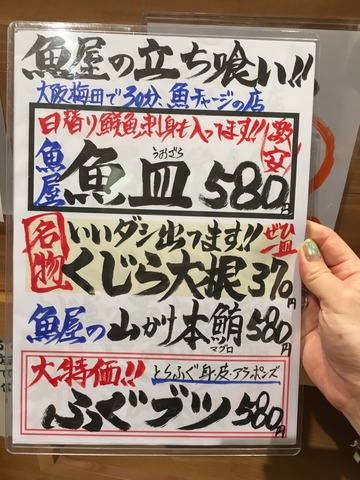 魚屋の立ち喰い!!
大阪梅田で30分、魚チャージの店
日替り鮮魚刺身も入ってます!! 激安
魚屋 魚皿 うおざら 580円
名物 いいダシ出てます!! ぜひ一皿
くじら大根 370円
魚屋の山かけ本鮪 マグロ 580円
大特価!! とらふぐ身・皮・アラ・ポンズ
ふぐブツ 580円